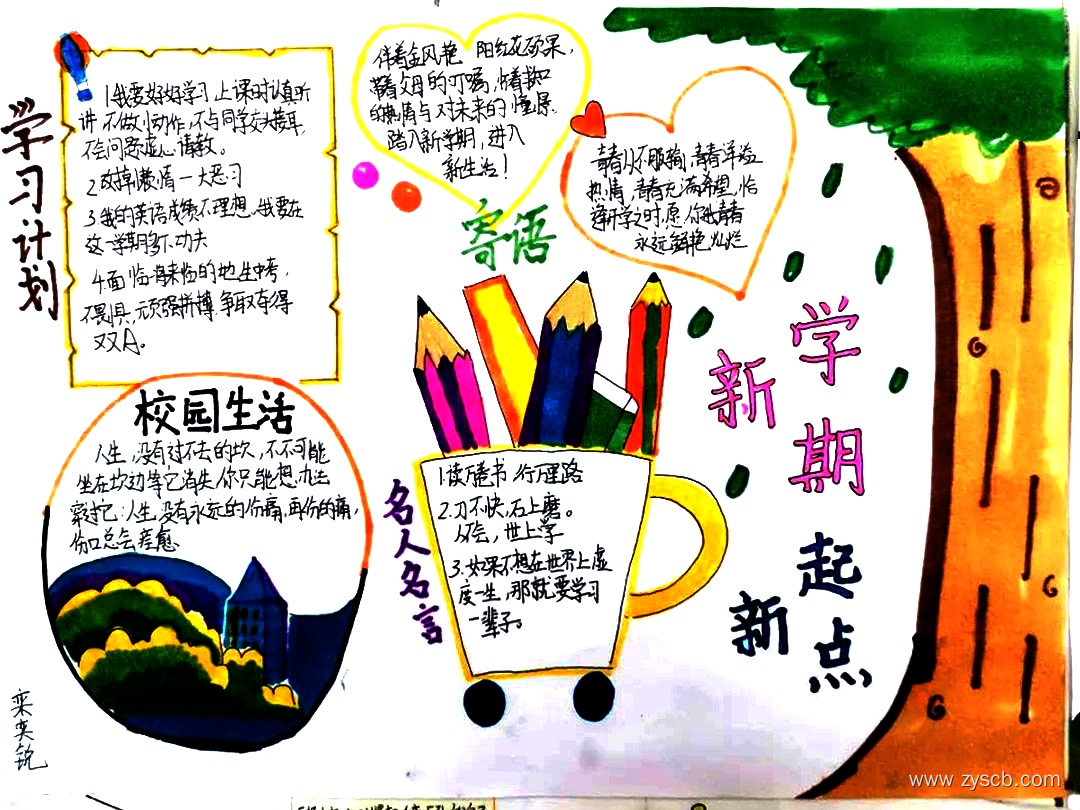 学习计划
1.我要好好学习 上课时认真听
讲,不做小动作,不与同学交头接耳,
不会问题虚心请教。
2.改掉懒惰一大恶习
3.我的英语成绩不理想,我要在
这一学期多下功夫
4.面临将来临的地生中考,
不畏惧,顽强拼搏,争取夺得
双A。
伴着金风艳阳红花硕果,
带着父母的叮嘱,怀着求知
的热情与对未来的憧憬,
踏入新学期,进入
新生活!
寄语
青春从不
热情,青春充满希望,恰
逢开学之时,愿你我青春
永远鲜艳灿烂
校园生活
人生,没有过不去的坎,不可能
坐在坎边等它消失,你只能想办法
穿过它;人生,没有永远的伤痛,再伤的痛,
伤口总会痊愈
名人名言
1.读万卷书 行万里路
2.刀不快,石上磨。
人不会,世上学
3.如果不想在世界上虚
度一生,那就要学习
一辈子。
新学期
新起点
栾奕锐
www.zyscb.com